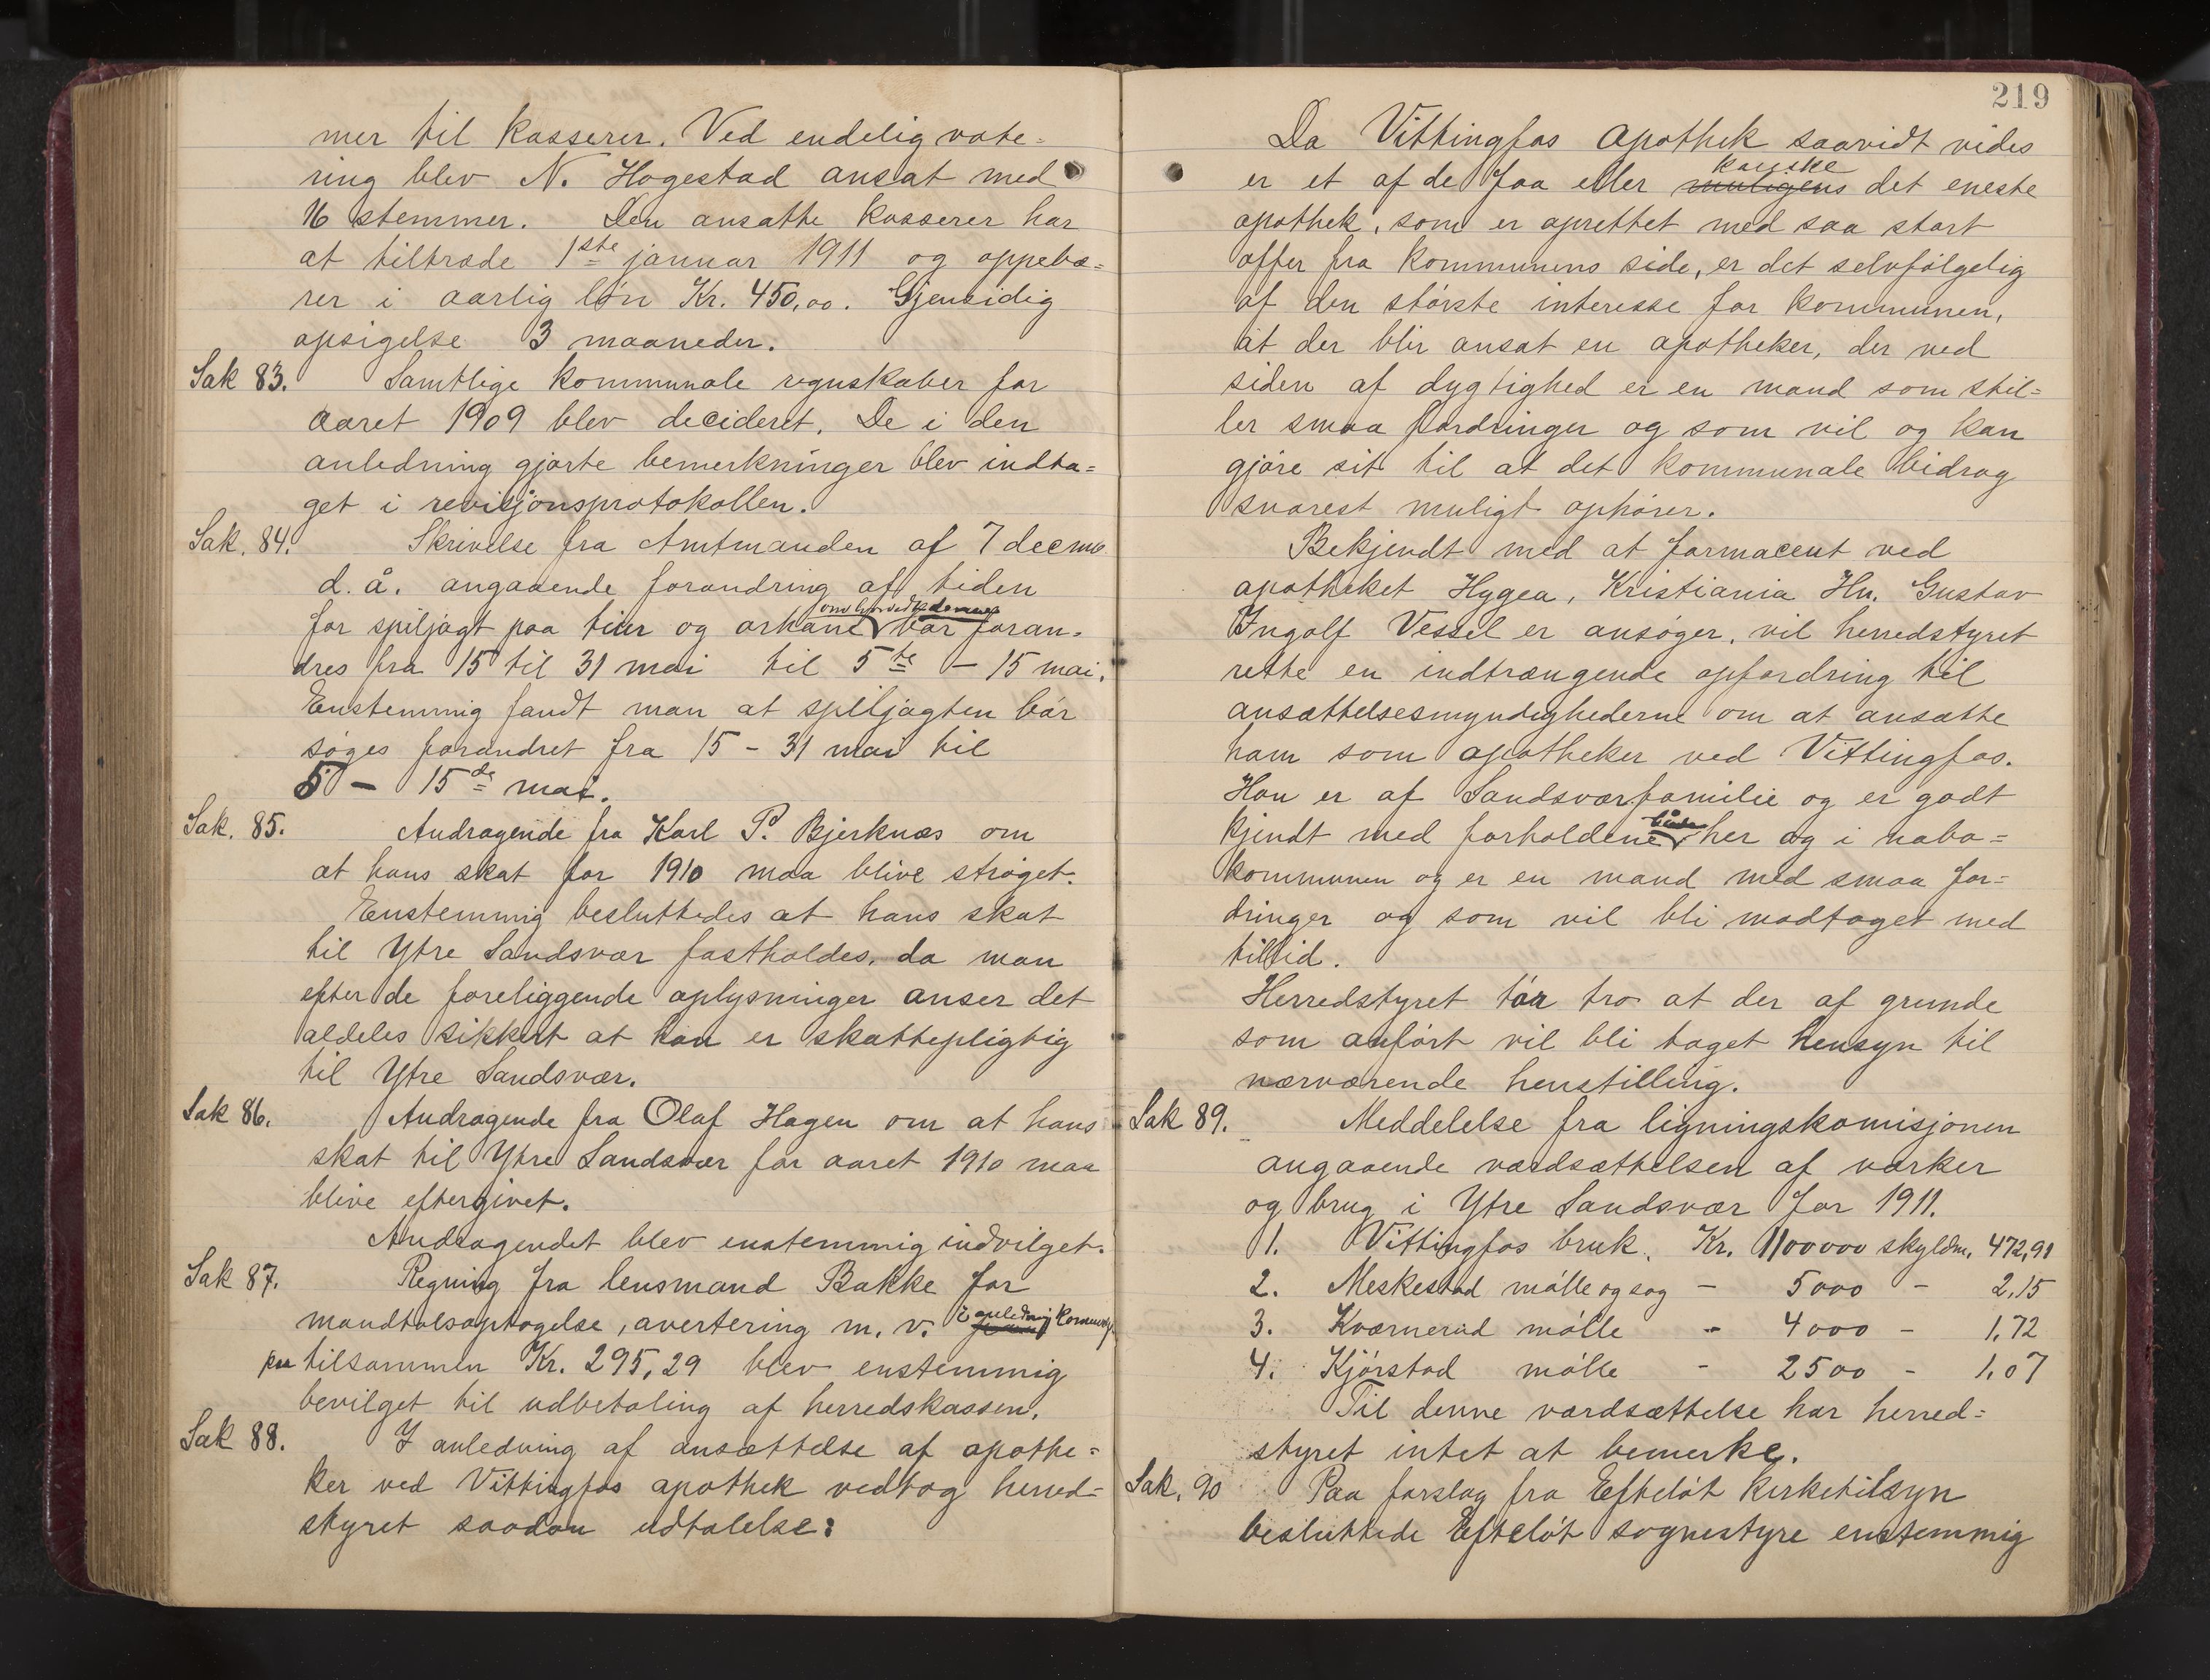 mer til kasserer. Ved endelig vote=
ring blev N. Hogestad ansat med
16 stemmer. Den ansatte kasserer har
at tiltræde 1ste januar 1911 og oppebæ=
rer i aarlig løn Kr. 450,00. Gjensidig
opsigelse 3 maaneder.
Sak 83. Samtlige kommunale regnskaber for
aaret 1909 blev decideret. De i den
anledning gjorte bemerkninger blev indta=
get i revisjonsprotokollen.
Sak. 84. Skrivelse fra Amtmanden af 7 decmb
d. å. angaaende forandring af tiden
for spiljagt paa tiur og orhane om hvorvidt denne bør foran=
dres fra 15 til 31 mai til 5te – 15 mai.
Enstemmig fandt man at spiljagten bør
søges forandret fra 15 – 31 mai til
5 – 15de mai.
Sak. 85. Andragende fra Karl P. Bjerknæs om
at hans skat for 1910 maa blive strøget.
Enstemmig besluttedes at hans skat
til Ytre Sandsvær fastholdes, da man
efter de foreliggende oplysninger anser det
aldeles sikkert at han er skattepligtig
til Ytre Sandsvær.
Sak 86. Andragende fra Olaf Hagen om at hans
skat til Ytre Sandsvær for aaret 1910 maa
blive eftergivet.
Andragendet blev enstemmig indvilget.
Sak 87. Regning fra lensmand Bakke for
mandtalsoptagelse, avertering m. v. i anledning
paa tilsammen Kr. 295,29 blev enstemmig
bevilget til udbetaling af herredskassen.
Sak 88. I anledning af ansættelse af apothe=
ker ved Vittingfos apothek vedtog herred=
styret saadan udtalelse:
219
Da Vittingfos Apothek saavidt vides
er et af de faa eller muligens kanske det eneste
apothek, som er oprettet med saa stort
offer fra kommunens side, er det selvfølgelig
af den største interesse for kommunen,
at der blir ansat en apotheker, der ved
siden af dygtighed er en mand som stil=
ler smaa fordringer og som vil og kan
gjøre sit til at det kommunale bidrag
snarest muligt ophører.
Bekjendt med at farmaceut ved
apotheket Hygea, Kristiania Hr. Gustav
Ingolf Vessel er ansøger, vil herredstyret
rette en indtrængende opfordring til
ansættelsesmyndighederne om at ansætte
ham som apotheker ved Vittingfos.
Han er af Sandsværfamilie og er godt
kjendt med forholdene både her og i nabo=
kommunen og er en mand med smaa for=
dringer og som vil bli modtaget med
tillid.
Herredstyret tør tro at der af grunde
som anført vil bli taget hensyn til
nærværende henstilling.
Sak 89. Meddelelse fra ligningskomisjonen
angaaende værdsættelsen af værker
og brug i Ytre Sandsvær for 1911.
1. Vittingfos bruk. Kr. 1100000 skyldm. 472,91
2. Meskestad mølle og sag – 5000 – 2,15
3. Kværnerud mølle – 4000 – 1,72
4. Kjørstad mølle – 2500 – 1,07
Til denne værdsættelse har herred=
styret intet at bemerke.
Sak. 90 Paa forslag fra Efteløt kirketilsyn
besluttede Efteløt sognestyre enstemmig